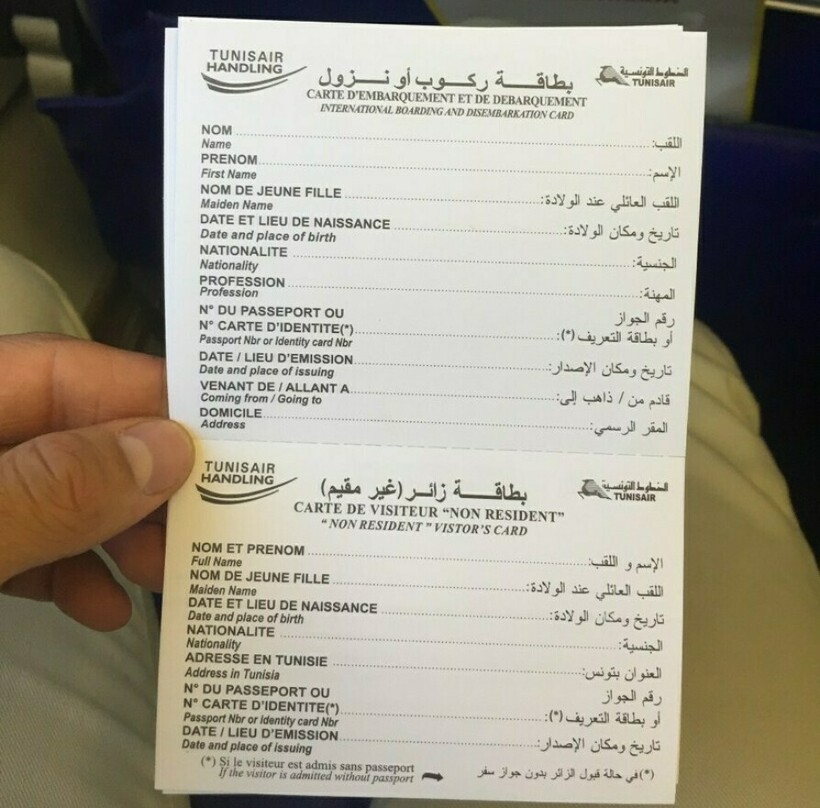 TUNISAIR HANDLING
بطاقـــة ركــوب أو نـــزول
الخطوط التونسية
TUNISAIR
CARTE D'EMBARQUEMENT ET DE DEBARQUEMENT
INTERNATIONAL BOARDING AND DISEMBARKATION CARD
NOM اللقب:
Name
PRENOM الإسم:
First Name
NOM DE JEUNE FILLE اللقب العائلي عند الولادة:
Maiden Name
DATE ET LIEU DE NAISSANCE تاريخ ومكان الولادة:
Date and place of birth
NATIONALITE الجنسية:
Nationality
PROFESSION المهنة:
Profession
N° DU PASSEPORT OU رقم الجواز
N° CARTE D'IDENTITE(*) أو بطاقة التعريف (*):
Passport Nbr or Identity card Nbr
DATE / LIEU D'EMISSION تاريخ ومكان الإصدار:
Date and place of issuing
VENANT DE / ALLANT A قادم من / ذاهب إلى:
Coming from / Going to
DOMICILE المقر الرسمي:
Address
TUNISAIR HANDLING
بطاقـــــة زائــر (غير مقيم)
الخطوط التونسية
TUNISAIR
CARTE DE VISITEUR "NON RESIDENT"
" NON RESIDENT " VISTOR'S CARD
NOM ET PRENOM الإسم و اللقب:
Full Name
NOM DE JEUNE FILLE اللقب العائلي عند الولادة:
Maiden Name
DATE ET LIEU DE NAISSANCE تاريخ ومكان الولادة:
Date and place of birth
NATIONALITE الجنسية:
Nationality
ADRESSE EN TUNISIE العنوان بتونس:
Address in Tunisia
N° DU PASSEPORT OU رقم الجواز
N° CARTE D'IDENTITE(*) أو بطاقة التعريف (*):
Passport Nbr or Identity card Nbr
DATE / LIEU D'EMISSION تاريخ ومكان الإصدار:
Date and place of issuing
(*) Si le visiteur est admis sans passeport (*) في حالة قبول الزائر بدون جواز سفر
If the visitor is admitted without passport